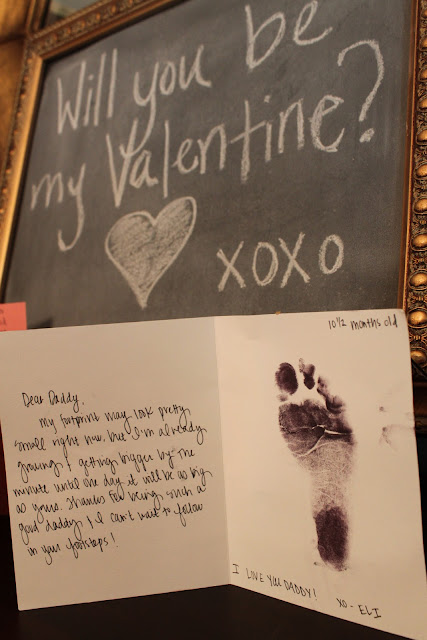 Will you be
my Valentine?
xoxo
10½ months old
Dear Daddy,
My footprint may look pretty
small right now, but I'm already
growing & getting bigger by the
minute until one day it will be as big
as yours. Thanks for being such a
good daddy & I can't wait to follow
in your footsteps!
I LOVE YOU DADDY!
XO - ELI